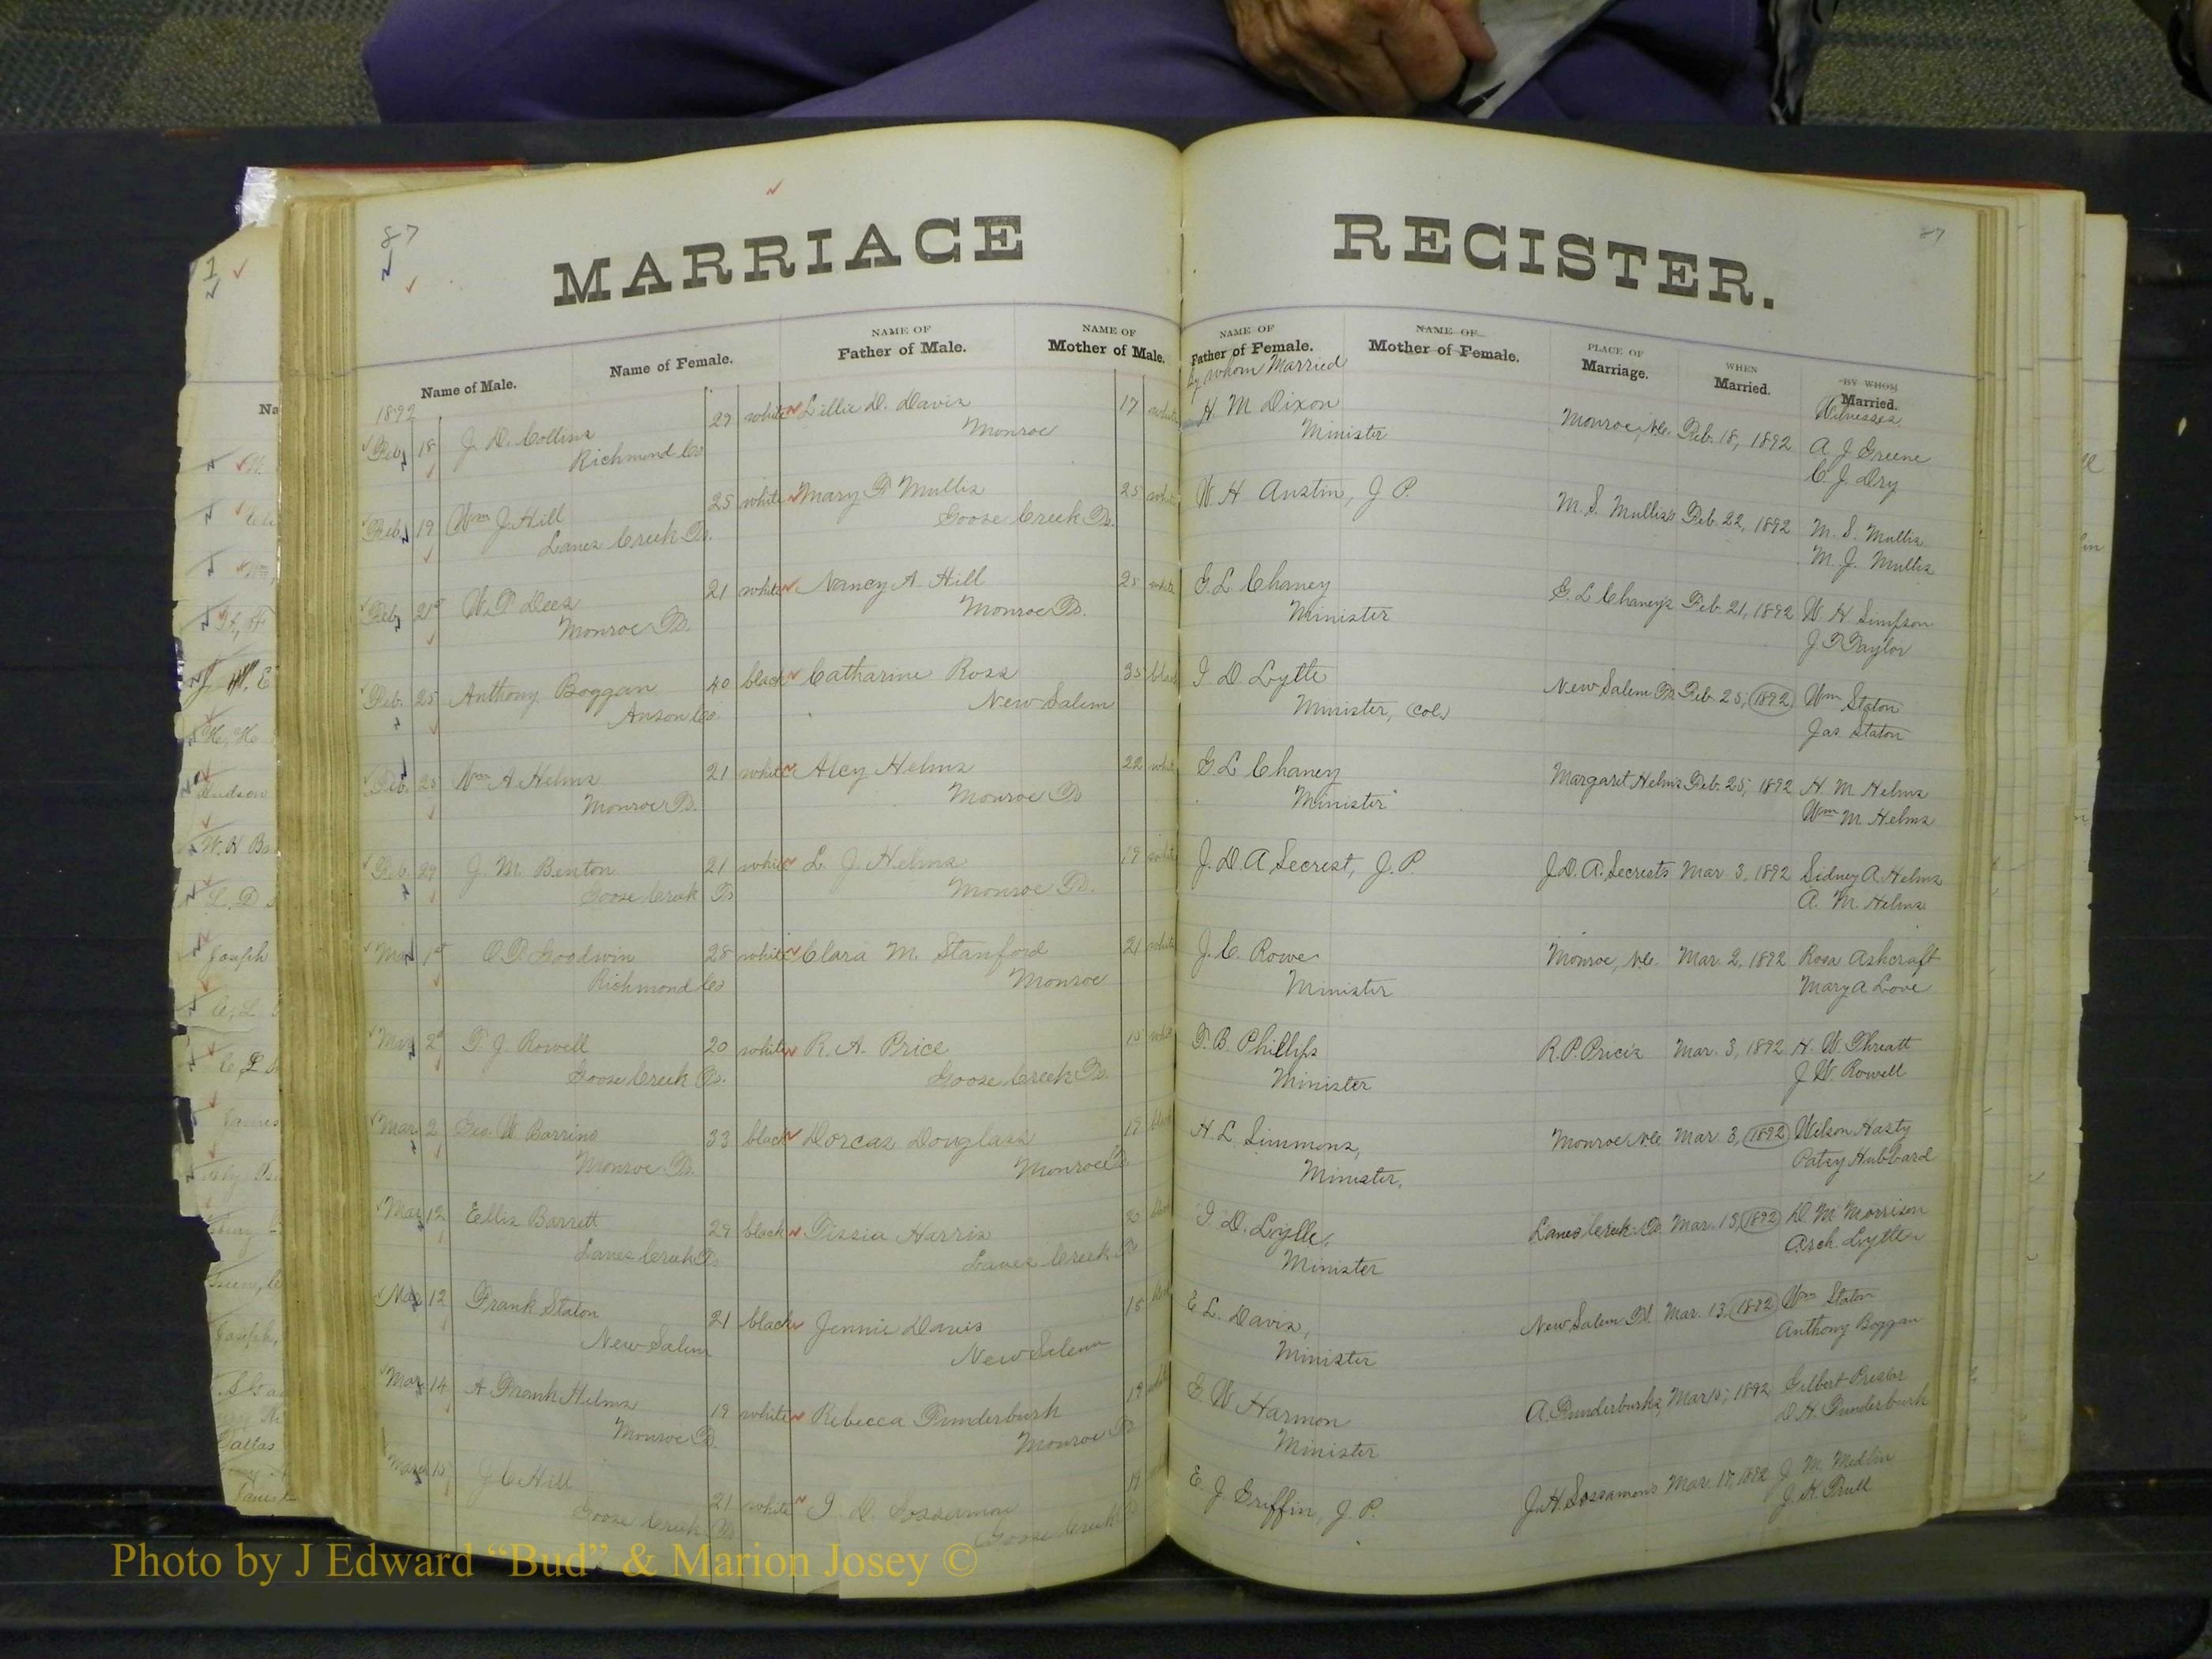 87
87
MARRIAGE REGISTER.
Name of Male.
Name of Female.
NAME OF Father of Male.
NAME OF Mother of Male.
NAME OF Father of Female.
by whom Married
NAME OF Mother of Female.
PLACE OF Marriage.
WHEN Married.
BY WHOM Married.
Witnesses
1892
Feb 18 J. D. Collins 29 white Lillie D. Davis 17 white H. M Dixon Monroe, N.C. Feb. 18, 1892 A J Greene
Richmond Co Monroe Minister C. J. Dry
Feb 19 Wm J. Hill 25 white Mary F Mullis 25 white W. H Austin, J P. M. S. Mullis's Feb. 22, 1892 M. S. Mullis
Lanes Creek Ts. Goose Creek Ts. M. J. Mullis
Feb 21st W. P Dees 21 white Nancy A. Hill 25 white G. L. Chaney G. L Chaney's Feb. 21, 1892 W. H Simpson
Monroe Ts. Monroe Ts. Minister J T Taylor
Feb. 25 Anthony Boggan 40 black Catharine Ross 35 black I D Lytle New Salem Ts. Feb. 25, 1892 Wm Staton
Anson Co. New Salem Minister, Col. Jas Staton
Feb. 25 Wm A Helms 21 white Alcy Helms 22 white G L Chaney Margaret Helms Feb. 25, 1892 H. M Helms
Monroe Ts. Monroe Ts Minister Wm M Helms
Feb. 29 J. M. Benton 21 white L. J. Helms 19 white J. D A Secrest, J. P. J. D. A. Secrests Mar 3, 1892 Sidney A. Helms
Goose Creek Ts Monroe Ts. A. M. Helms
Mar 1st O P Goodwin 28 white Clara M. Stanford 21 white J. C. Rowe Monroe, N.C. Mar. 2, 1892 Rosa Ashcraft
Richmond Co Monroe Minister Mary A Love
Mar 2d T. J. Rowell 20 white R. A. Price 15 white T. B. Phillips R. P. Price's Mar. 3, 1892 H. W. Threatt
Goose Creek Ts. Goose Creek Ts. Minister J W. Rowell
Mar 2 Geo. W Barrino 33 black Dorcas Douglass 19 black H. L. Simmons, Monroe N.C. Mar. 3, 1892 Wilson Hasty
Monroe Ts. Monroe Minister, Patsy Hubbard
Mar 12 Ellis Barrett 29 black Tissia Harris black I. D. Lytle, Lanes Creek Ts Mar. 13, 1892 D. M Morrison
Lanes Creek Ts Lanes Creek Ts Minister Arch. Lytle
Mar 12 Frank Staton 21 black Jennie Davis 18 black E L. Davis, New Salem Mar. 13, 1892 Wm Staton
New Salem New Salem Minister Anthony Boggan
Mar 14 A Frank Helms 19 white Rebecca Funderburk 19 white G W Harmon A. Funderburks, Mar 15, 1892 Gilbert Presler
Monroe Ts. Monroe Ts Minister D. H. Funderburk
March 15 J C Hill 21 white I. D. Sossamon 19 E. J. Griffin, J. P. J. H. Sossamons Mar. 17, 1892 J. M. Medlin
Goose Creek Ts Goose Creek Ts J. K. Prull
Photo by J Edward “Bud” & Marion Josey ©